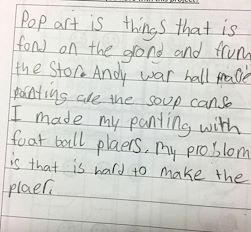 this project?
Pop art is things that is
fond on the grond and frum
the Store Andy war hall made
panting cale the soup canse
I made my panting with
foot ball plaers. my problom
is that is hard to make the
plaer.